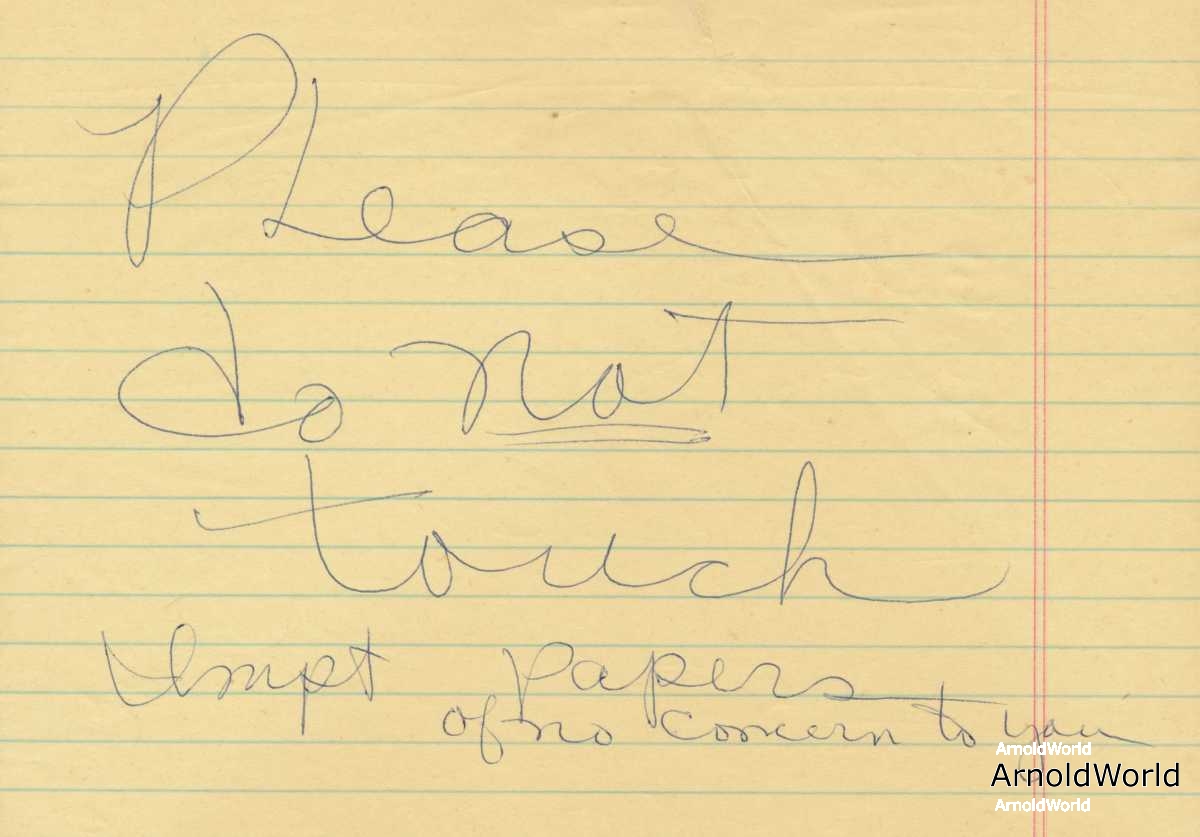 Please
do not
touch
Impt papers
of no concern to you
ArnoldWorld
ArnoldWorld
ArnoldWorld